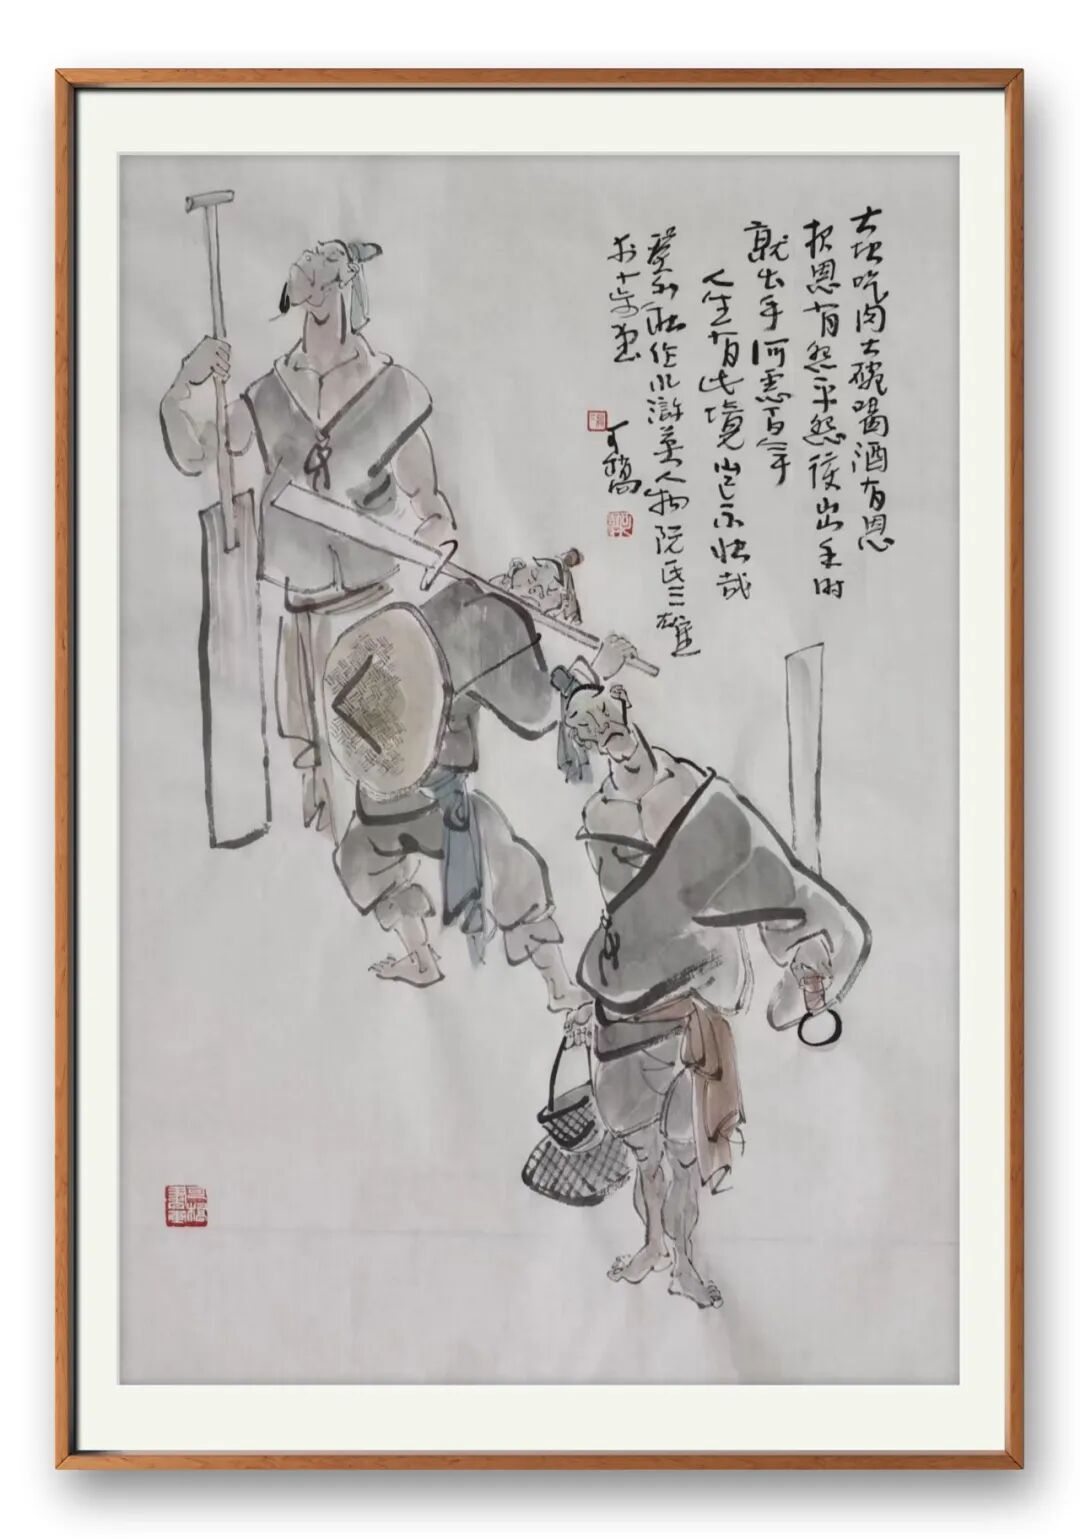 大块吃肉大碗喝酒有恩
报恩有怨平怨该出手时
就出手何需百年
人生有此境岂不快哉
癸卯秋作水浒英人物阮氏三雄
于十步
可